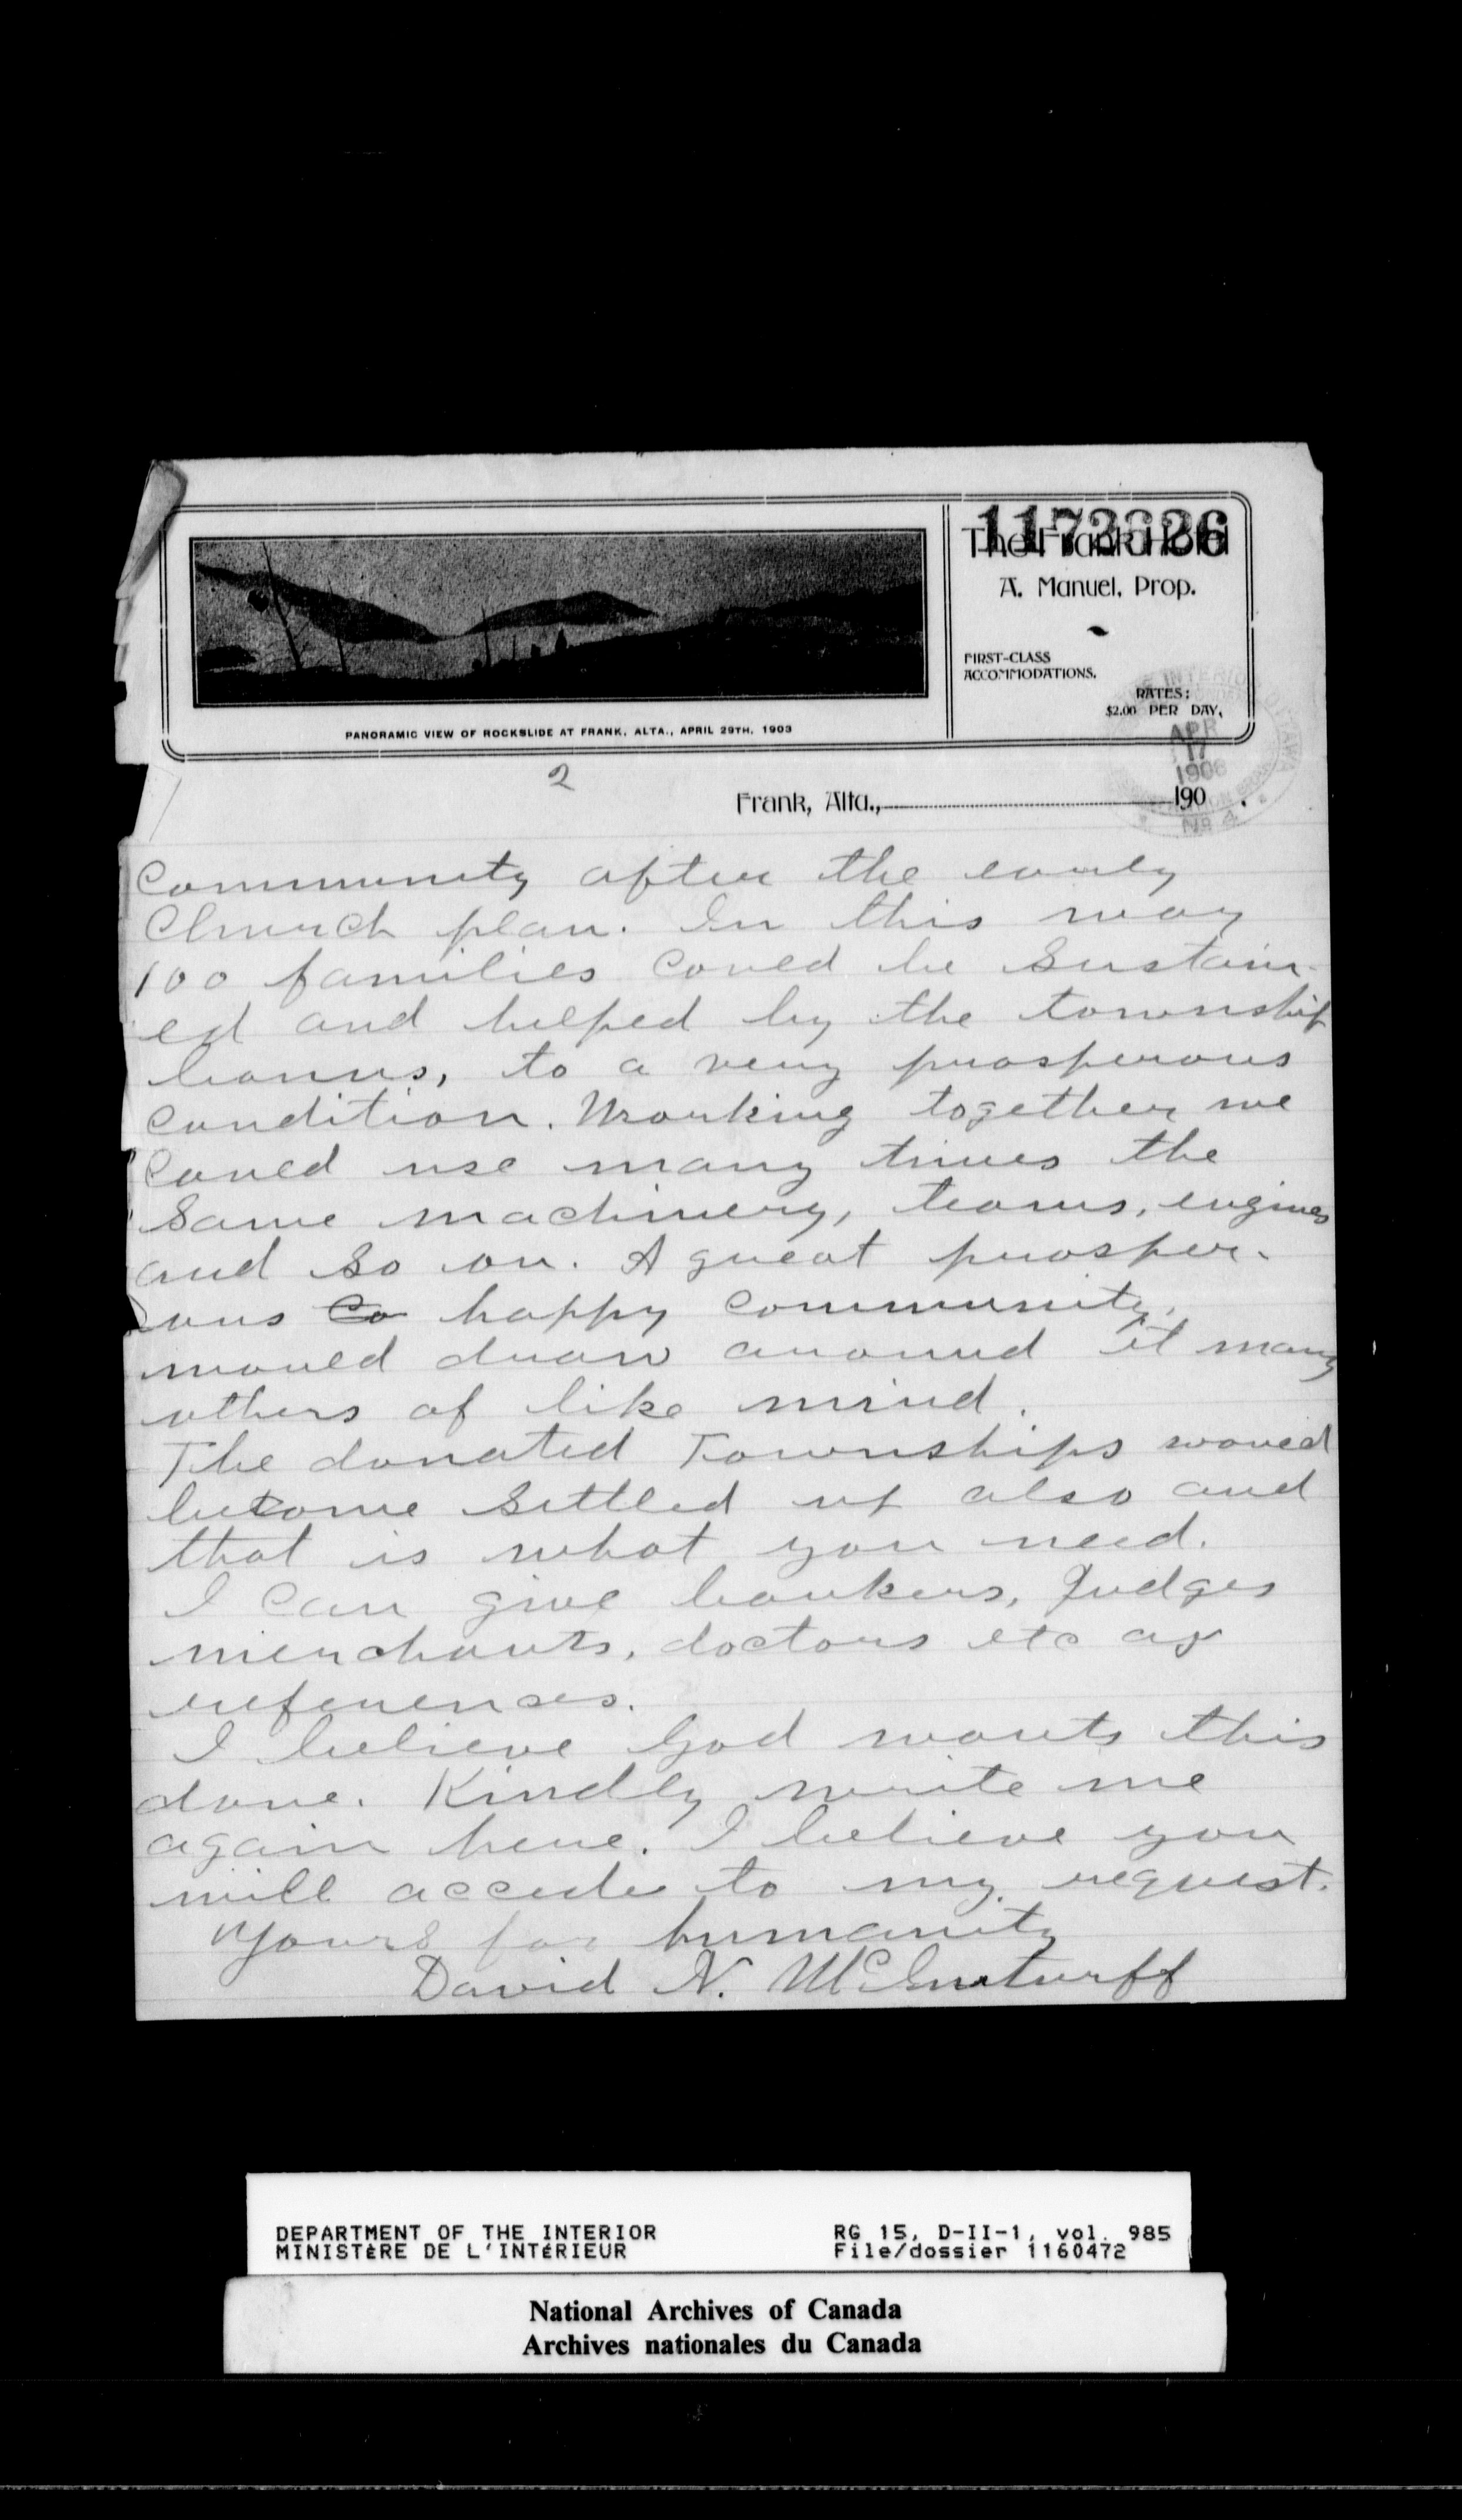 1172326
The Frank Hotel
A. Manuel, Prop.
FIRST-CLASS
ACCOMMODATIONS.
RATES:
$2.00 PER DAY.
PANORAMIC VIEW OF ROCKSLIDE AT FRANK, ALTA., APRIL 29TH, 1903
APR
17
1906
No 4
2
Frank, Alta., 190
Community after the early
Church plan. In this way
100 families Could be Sustain-
ed and helped by the township
bonus, to a very prosperous
Condition. Working together we
Could use many times the
Same machinery, teams, engines
and So on. A great prosper-
ous Co happy Community,
would draw around it many
others of like mind.
The donated Townships would
become Settled up also and
that is what you need.
I Can give bankers, Judges
merchants, doctors etc as
references.
I believe God wants this
done. Kindly write me
again here. I believe you
will accede to my request.
Yours for humanity
David N. McInturff
DEPARTMENT OF THE INTERIOR
MINISTÈRE DE L'INTÉRIEUR
RG 15, D-II-1, vol. 985
File/dossier 1160472
National Archives of Canada
Archives nationales du Canada